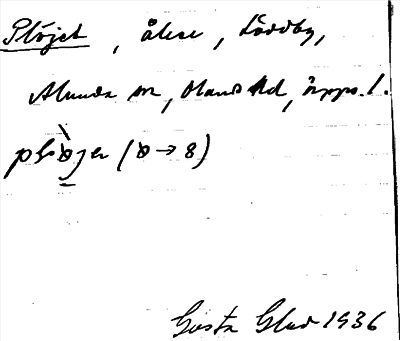 Plöjet, åker, Löddby,
Alunda sn, Olands hd, Upps. l.
Gösta Glad 1936